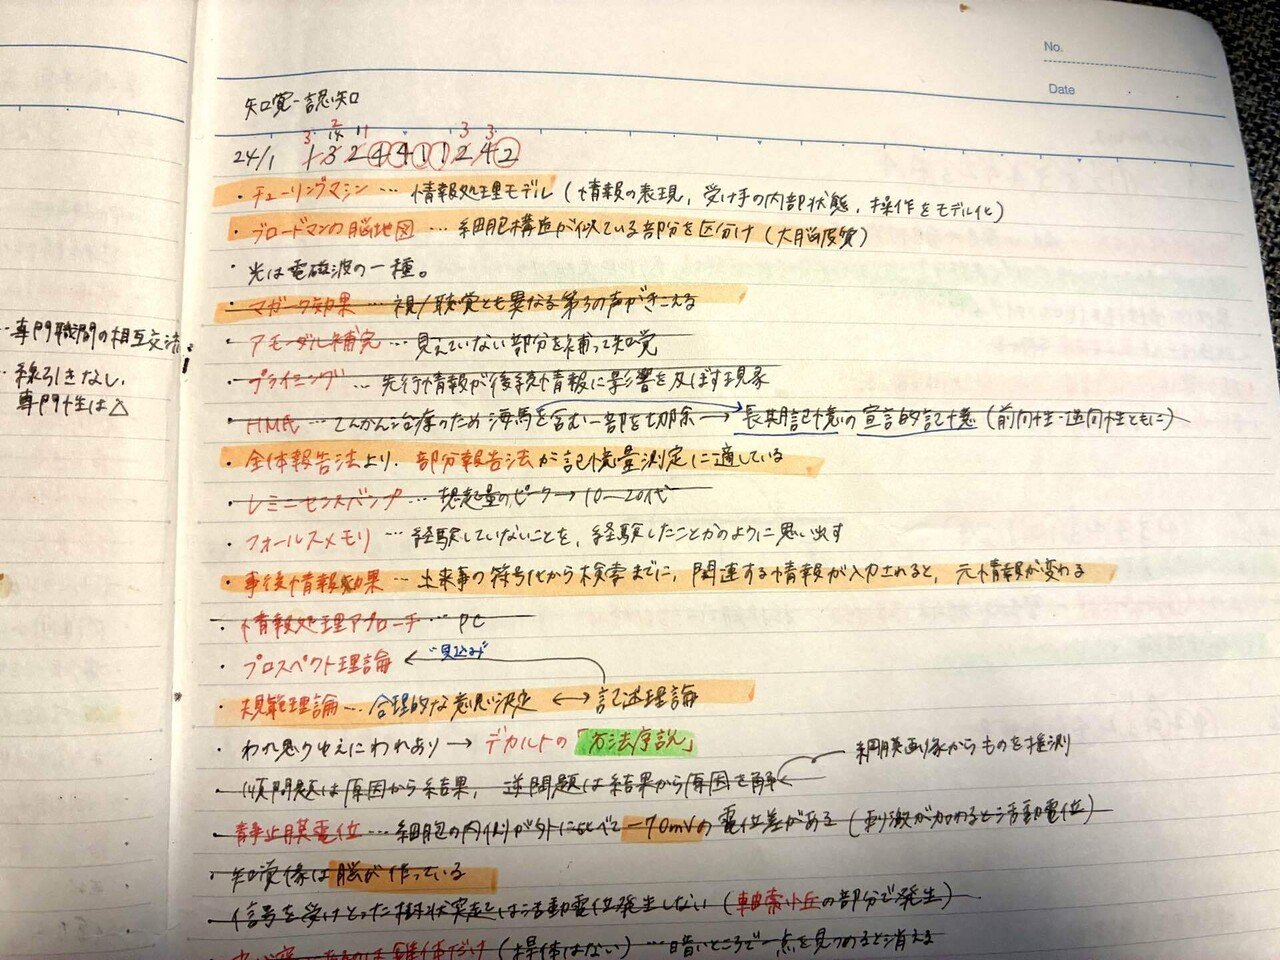 専門職間の相互交流
線引きなし.
専門性は△
No.
Date
知覚-認知
3. 2 11 3 3.
24/1 1 3 2 4 4 1 1 2 4 2
・チューリングマシン … 情報処理モデル (情報の表現, 受け手の内部状態, 操作をモデル化)
・ブロードマンの脳地図 … 細胞構造が似ている部分を区分け (大脳皮質)
・光は電磁波の一種。
・マガーク効果 … 視/聴覚とも異なる第3の声がきこえる
・アモーダル補完 … 見えていない部分を補って知覚
・プライミング … 先行情報が後続情報に影響を及ぼす現象
・HM氏 … てんかん治療のため海馬を含む一部を切除 → 長期記憶の宣言的記憶 (前向性・逆向性ともに)
・全体報告法より, 部分報告法が記憶量測定に適している
・レミニセンスバンプ … 想起量のピーク→10-20代
・フォールスメモリ … 経験していないことを, 経験したことかのように思い出す
・事後情報効果 … 出来事の符号化から検索までに, 関連する情報が入力されると, 元情報が変わる
・情報処理アプローチ … PC
・プロスペクト理論 ← "見込み"
・規範理論 … 合理的な意思決定 ↔ 記述理論
・われ思うゆえにわれあり → デカルトの「方法序説」
網膜画像からものを推測
・順問題は原因から結果, 逆問題は結果から原因を解
・静止膜電位 … 細胞の内側が外に比べて -70mVの電位差がある (刺激が加わると活動電位)
・知覚像は脳が作っている
・信号を受けとった樹状突起では活動電位発生しない (軸索小丘の部分で発生)
錐体だけ (桿体はない) … 暗いところで一点を見つめると消える